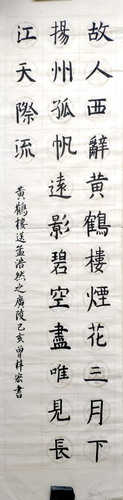 故人西辭黃鶴樓煙花三月下
揚州孤帆遠影碧空盡唯見長
江天際流
黃鶴樓送孟浩然之廣陵己亥曾梓宏書